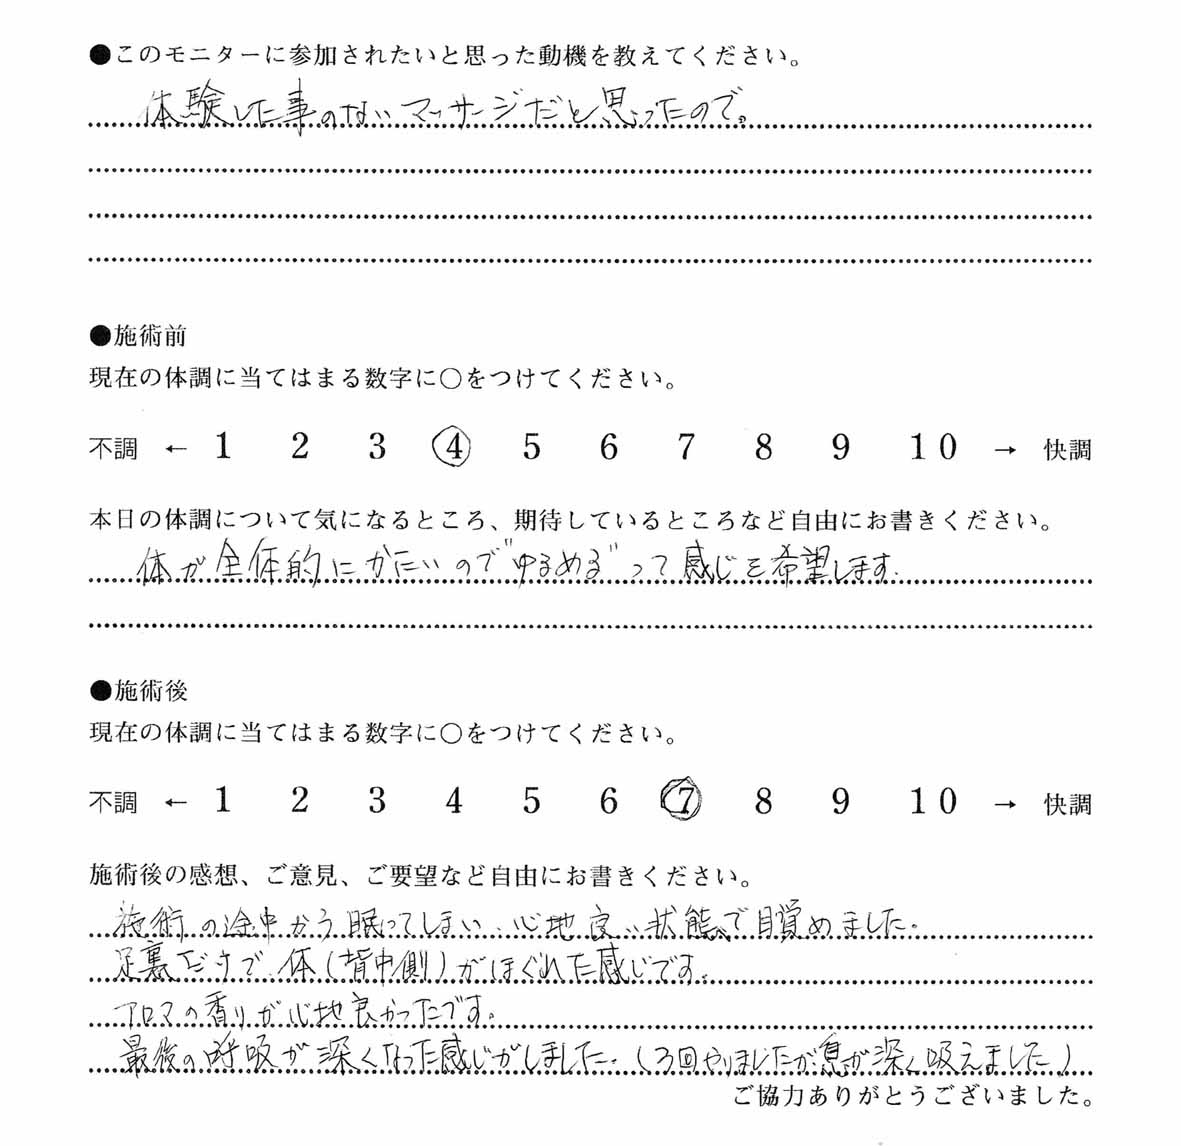 ●このモニターに参加されたいと思った動機を教えてください。
体験した事のないマッサージだと思ったので。
●施術前
現在の体調に当てはまる数字に○をつけてください。
不調 ← 1 2 3 4 5 6 7 8 9 10 → 快調
本日の体調について気になるところ、期待しているところなど自由にお書きください。
体が全体的にかたいので"ゆるめる"って感じを希望します.
●施術後
現在の体調に当てはまる数字に○をつけてください。
不調 ← 1 2 3 4 5 6 7 8 9 10 → 快調
施術後の感想、ご意見、ご要望など自由にお書きください。
施術の途中から眠ってしまい、心地良い状態で目覚めました。
足裏だけで、体(背中側)がほぐれた感じです。
アロマの香りが心地良かったです。
最後の呼吸が深くなった感じがしました。(3回やりましたが息が深く吸えました)
ご協力ありがとうございました。